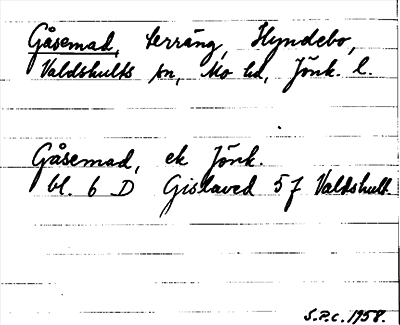 Gåsemad, terräng, Hyndebo,
Valdshults sn, Mo hd, Jönk. l.
Gåsemad, ek Jönk.
bl. 6 D Gislaved 5 f Valdshult.
S.P.C. 1958.